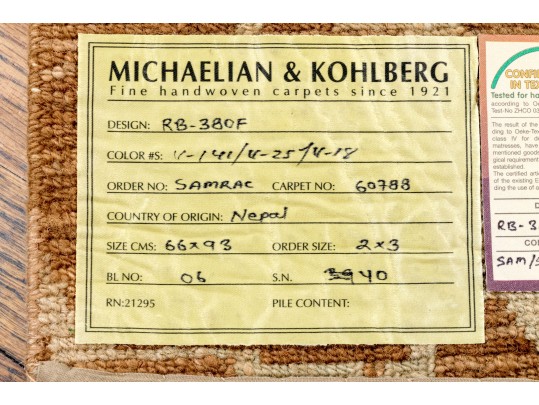 MICHAELIAN & KOHLBERG
Fine handwoven carpets since 1921
DESIGN: RB-380F
COLOR #S: V-141/V-25/V-18
ORDER NO: SAMRAC CARPET NO: 60788
COUNTRY OF ORIGIN: Nepal
SIZE CMS: 66x93 ORDER SIZE: 2x3
BL NO: 06 S.N. 40
RN:21295 PILE CONTENT:
CONFI
IN TEX
Tested for ha
according to Oe
Test-No ZHCO 03
The result of the
ding to Oeke-Tex
class IV for de
matresses, have
mentioned goods
gical requirement
established.
The certified arti
of the existing E
ding the use of a
D
RB-3
CO
SAM/S